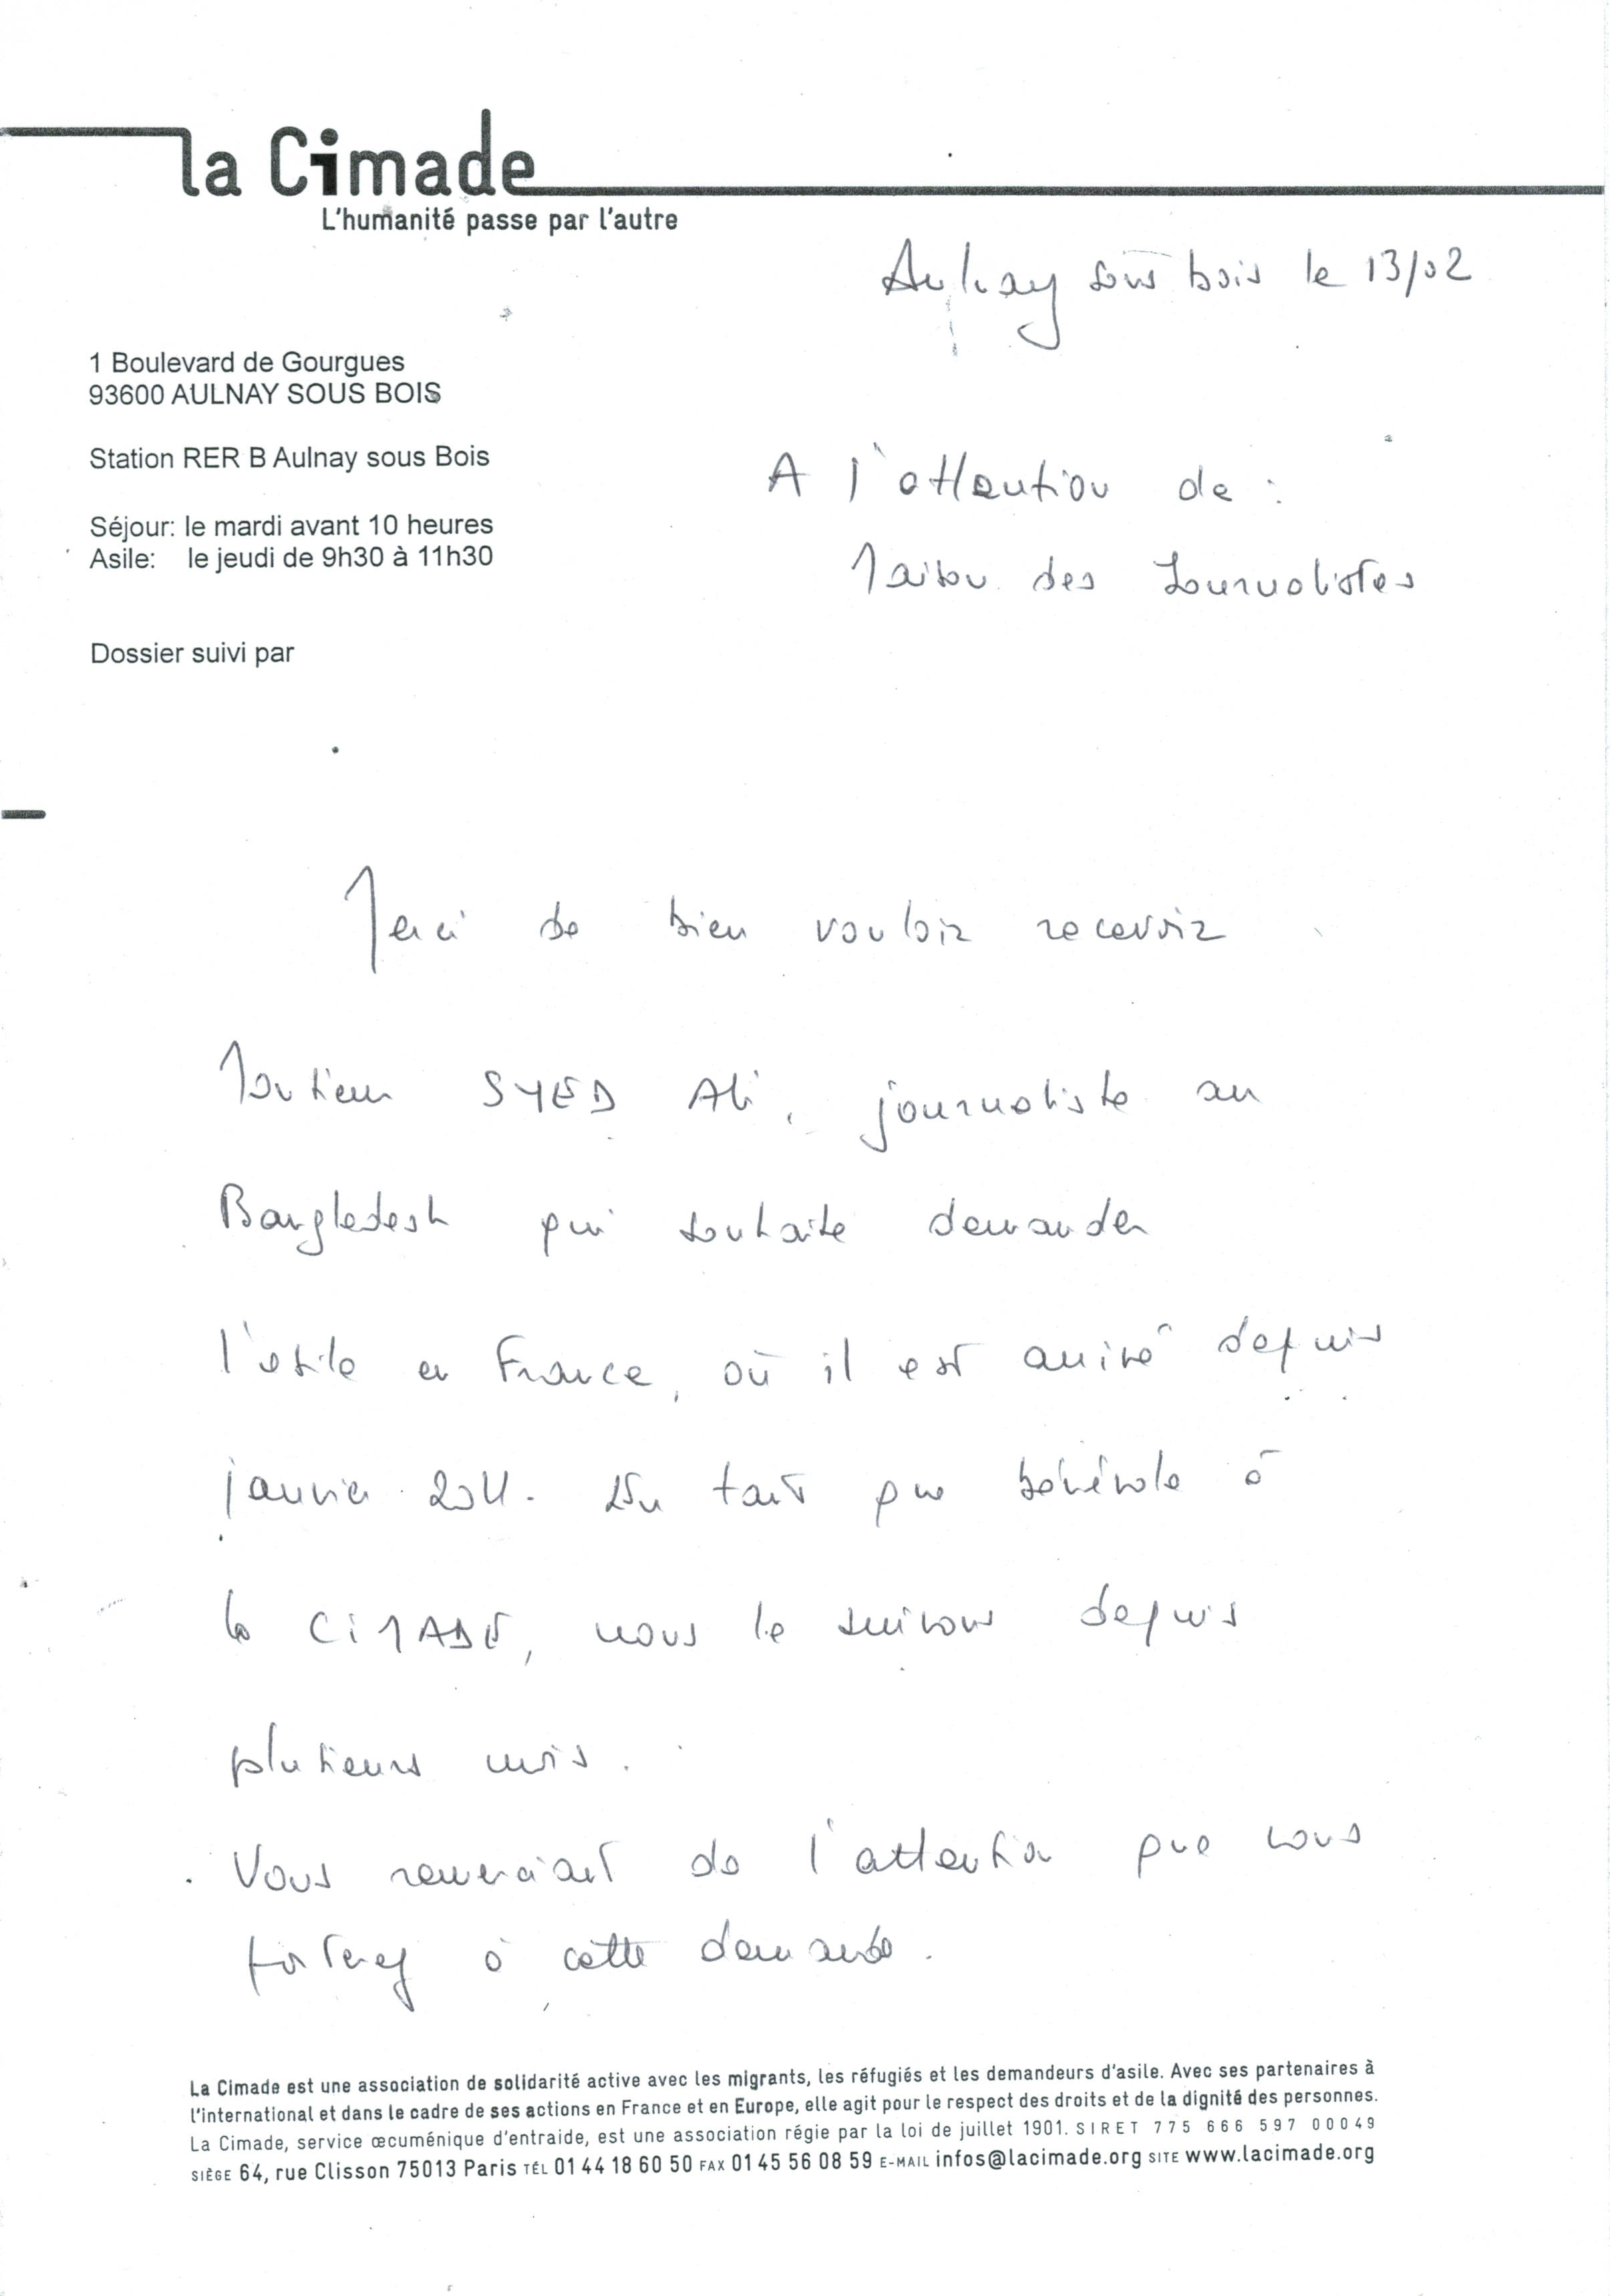 la Cimade
L'humanité passe par l'autre
Aulnay sous bois le 13/02
1 Boulevard de Gourgues
93600 AULNAY SOUS BOIS
Station RER B Aulnay sous Bois
A l'attention de :
Séjour: le mardi avant 10 heures
Asile: le jeudi de 9h30 à 11h30
Maison des Journalistes
Dossier suivi par
Merci de bien vouloir recevoir
Monsieur SYED Ali, journaliste au
Bangledesh qui souhaite demander
l'asile en France, où il est arrivé depuis
janvier 2011. En tant que bénévole à
la CiMADE, nous le suivons depuis
plusieurs mois.
Vous remerciant de l'attention que vous
porterez à cette demande.
La Cimade est une association de solidarité active avec les migrants, les réfugiés et les demandeurs d'asile. Avec ses partenaires à
l'international et dans le cadre de ses actions en France et en Europe, elle agit pour le respect des droits et de la dignité des personnes.
La Cimade, service œcuménique d'entraide, est une association régie par la loi de juillet 1901. SIRET 775 666 597 00049
SIÈGE 64, rue Clisson 75013 Paris TÉL 01 44 18 60 50 FAX 01 45 56 08 59 E-MAIL infos@lacimade.org SITE www.lacimade.org